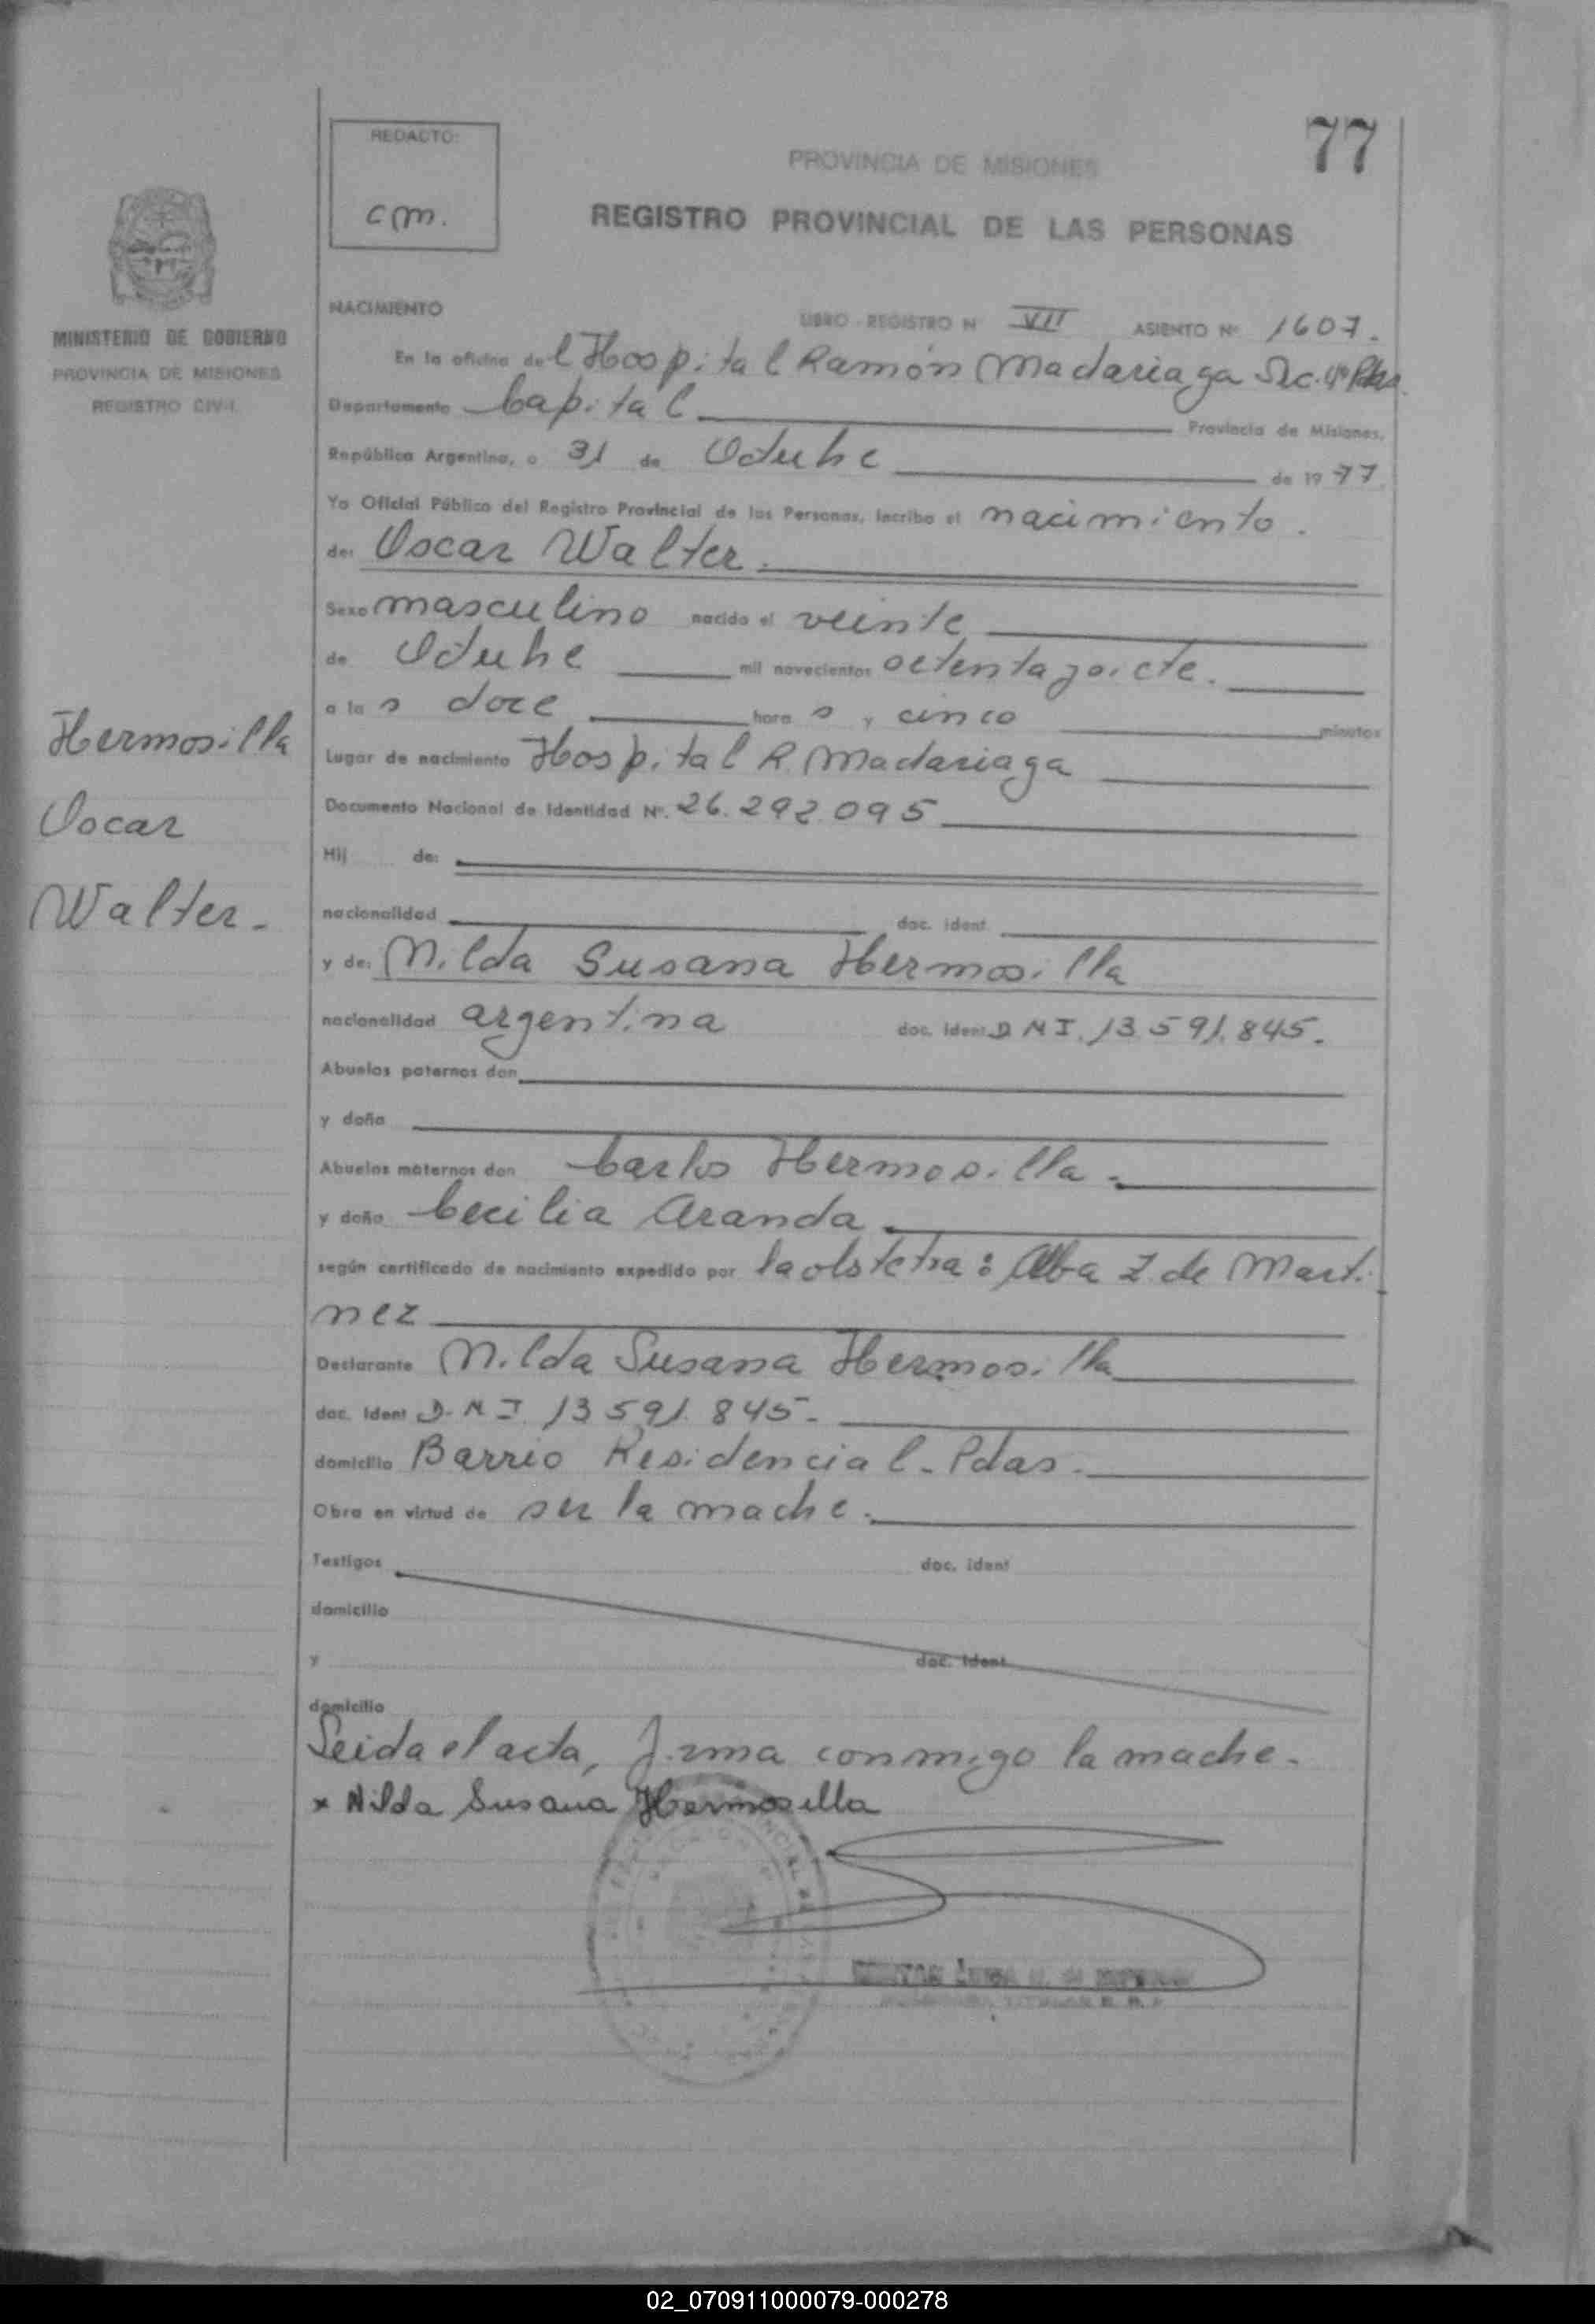 77
REDACTO:
cm.
PROVINCIA DE MISIONES
REGISTRO PROVINCIAL DE LAS PERSONAS
MINISTERIO DE GOBIERNO
PROVINCIA DE MISIONES
REGISTRO CIVIL
NACIMIENTO
LIBRO - REGISTRO N VII ASIENTO Nº 1607.
En la oficina del Hospital Ramón Madariaga Sec. 4º Pdas
Departamento Capital Provincia de Misiones,
República Argentina, a 31 de Octubre de 1977
Yo Oficial Público del Registro Provincial de las Personas, inscribo el nacimiento.
de: Oscar Walter.
Sexo masculino nacido el veinte
de Octubre mil novecientos setenta y siete.
a las doce horas y cinco minutos
Lugar de nacimiento Hospital R. Madariaga
Documento Nacional de Identidad Nº. 26.292.095
Hij de:
nacionalidad doc. ident.
y de: Nilda Susana Hermosilla
nacionalidad argentina doc. ident. D.N.I. 13.591.845.
Abuelos paternos don
y doña
Abuelos maternos don Carlos Hermosilla.
y doña Cecilia Aranda
según certificado de nacimiento expedido por la obstetra: Alba Z. de Martí-
nez
Declarante Nilda Susana Hermosilla
doc. ident D.N.I. 13.591.845.
domicilio Barrio Residencial - Pdas.
Obra en virtud de ser la madre.
Testigos doc. ident
domicilio
y doc. ident
domicilio
Leida el acta, firma conmigo la madre.
x Nilda Susana Hermosilla
Hermosilla
Oscar
Walter.
02_070911000079-000278